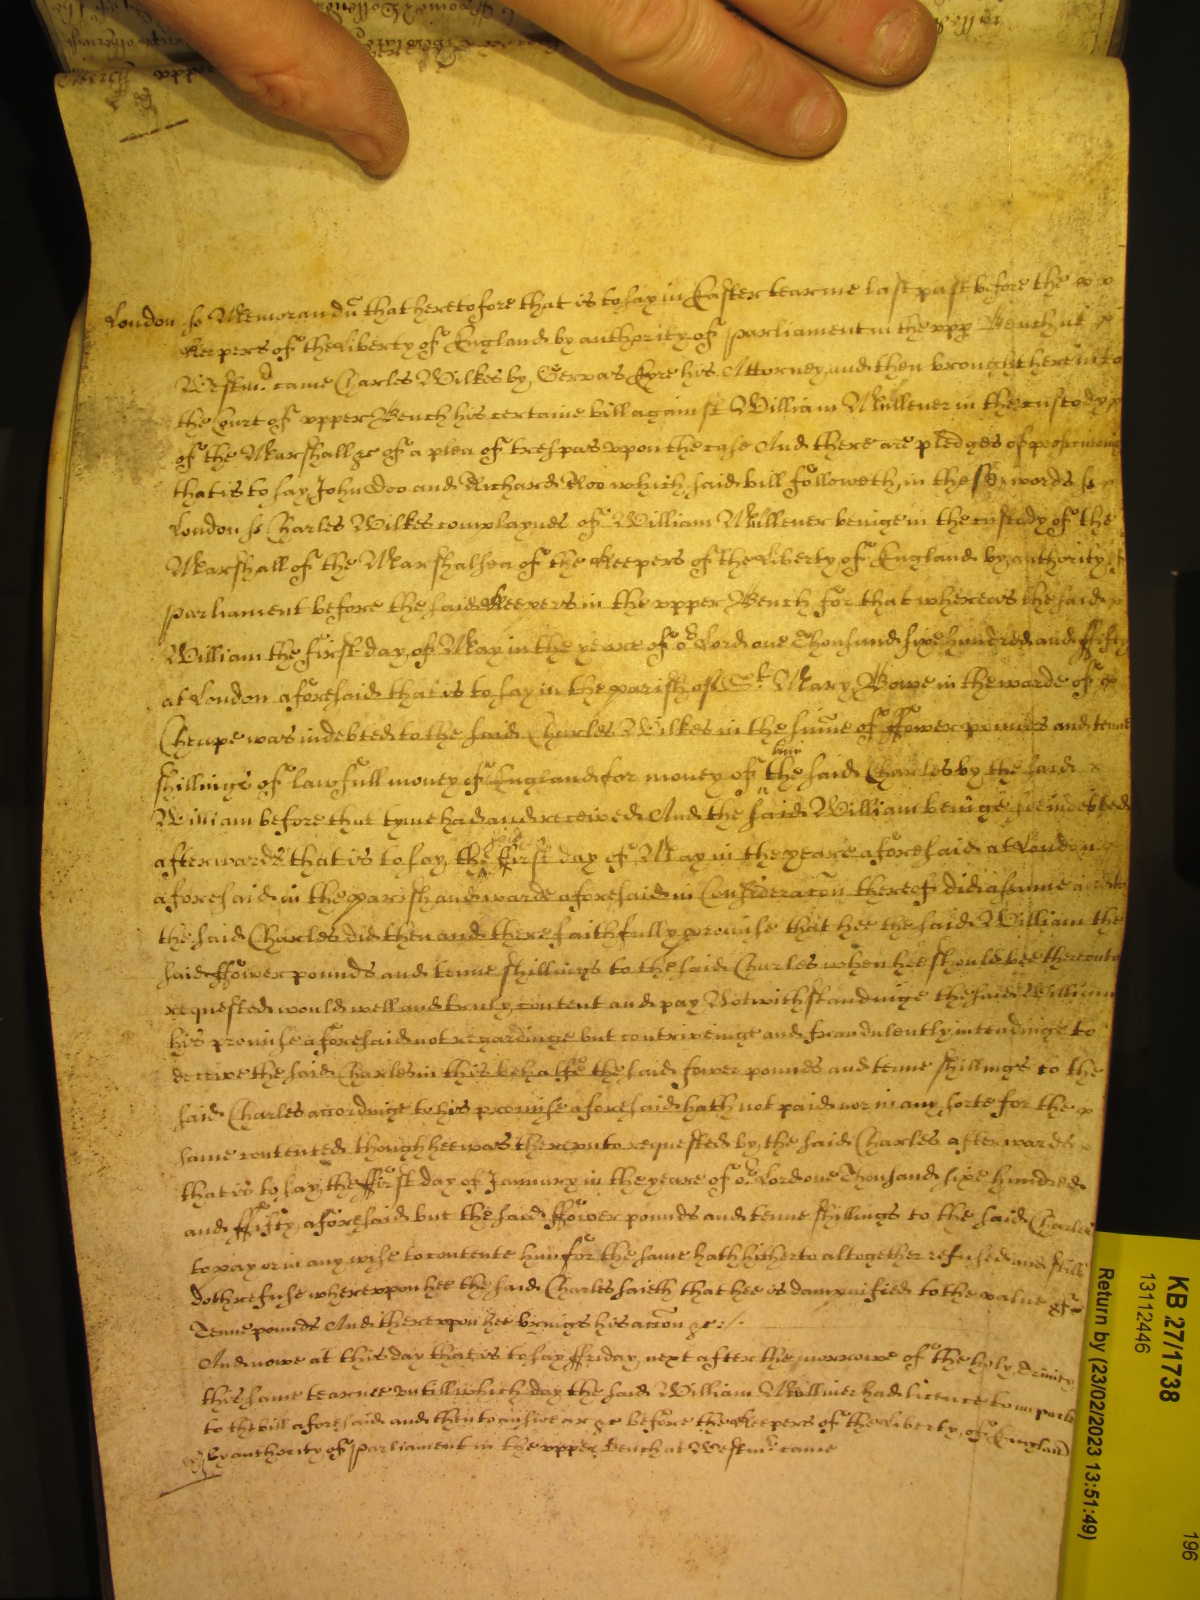 London ss Memorandu that heretofore that is to say in Easter tearme last past before the
Keepers of the Liberty of England by authority of Parliament in the upp Bench at
Westmr came Charles Wilkes by Gervas Eyre his Attorney and then brought here into
the Court of upper Bench his certaine bill against William Mullener in the custody
of the Marshall &c of a plea of trespas upon the case And there are pledges of prosecuting
that is to say John Doo and Richard Roo which said bill followeth in these words ss
London ss Charles Wilkes complaynes of William Mullener beinge in the custody of the
Marshall of the Marshalsea of the Keepers of the Liberty of England by authority of
Parliament before the said Keepers in the upper Bench for that whereas the said
William the first day of May in the yeare of or Lord one Thousand sixe hundred and ffifty
at London aforesaid that is to say in the parish of St Mary Bowe in the warde of
Cheape was indebted to the said Charles Wilkes in the sume of ffower pounds and tenne
shillings of lawfull money of England for money of him the said Charles by the said
William before that tyme had and received And the said William beinge soe indebted
afterwards that is to say the said ffirst day of May in the yeare aforesaid at London
aforesaid in the parish and warde aforesaid in Consideracon thereof did assume and to
the said Charles did then and there faithfully promise that hee the said William the
said ffower pounds and tenne shillings to the said Charles when hee should bee thereunto
requested would well and truly content and pay Notwithstandinge the said William
his promise aforesaid not regardinge but contriveinge and fraudulently intendinge to
deceive the said Charles in this behalfe the said fower pounds and tenne shillings to the
said Charles accordinge to his promise aforesaid hath not paid nor in any sorte for the
same contented though hee was thereunto requested by the said Charles afterwards
that is to say the ffirst day of January in the yeare of or Lord one Thousand sixe hundred
and ffifty aforesaid but the said ffower pounds and tenne shillings to the said Charles
to pay or in any wise to contente him for the same hath hitherto altogether refused and still
doth refuse whereupon hee the said Charles saieth that hee is dampnified to the value of
Tenne pounds And thereupon hee brings his accon &c
And nowe at this day that is to say ffriday next after the morrowe of the holy Trinity
this same tearme untill which day the said William Mulliner had licence to imparle
to the bill aforesaid and then to answear &c before the Keepers of the Liberty of England
by authority of Parliament in the upper Bench at Westmr came
KB 27/1738
13112446
196
Return by (23/02/2023 13:51:49)